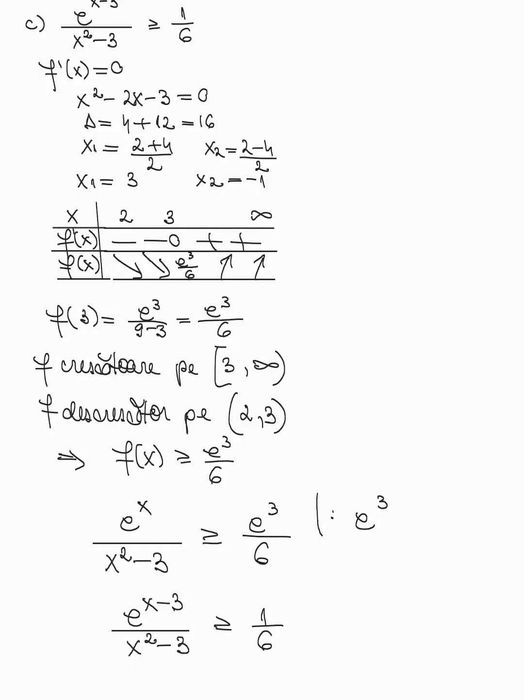 c) e^(x-3)/(x²-3) ≥ 1/6
f'(x)=0
x²-2x-3=0
Δ=4+12=16
x₁=(2+4)/2 x₂=(2-4)/2
x₁=3 x₂=-1
x 2 3 ∞
f'(x) — — 0 + +
f(x) ↘ ↘ e³/6 ↑ ↑
f(3)=e³/(9-3)=e³/6
f crescătoare pe [3,∞)
f descrescător pe (2,3)
⇒ f(x) ≥ e³/6
e^x/(x²-3) ≥ e³/6 |: e³
e^(x-3)/(x²-3) ≥ 1/6